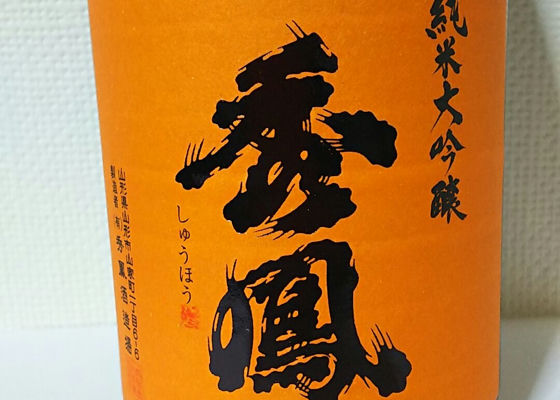 純米大吟醸
秀鳳
しゅうほう
山形県山形市山家町二丁目8-8
製造者 (有) 秀鳳酒造場